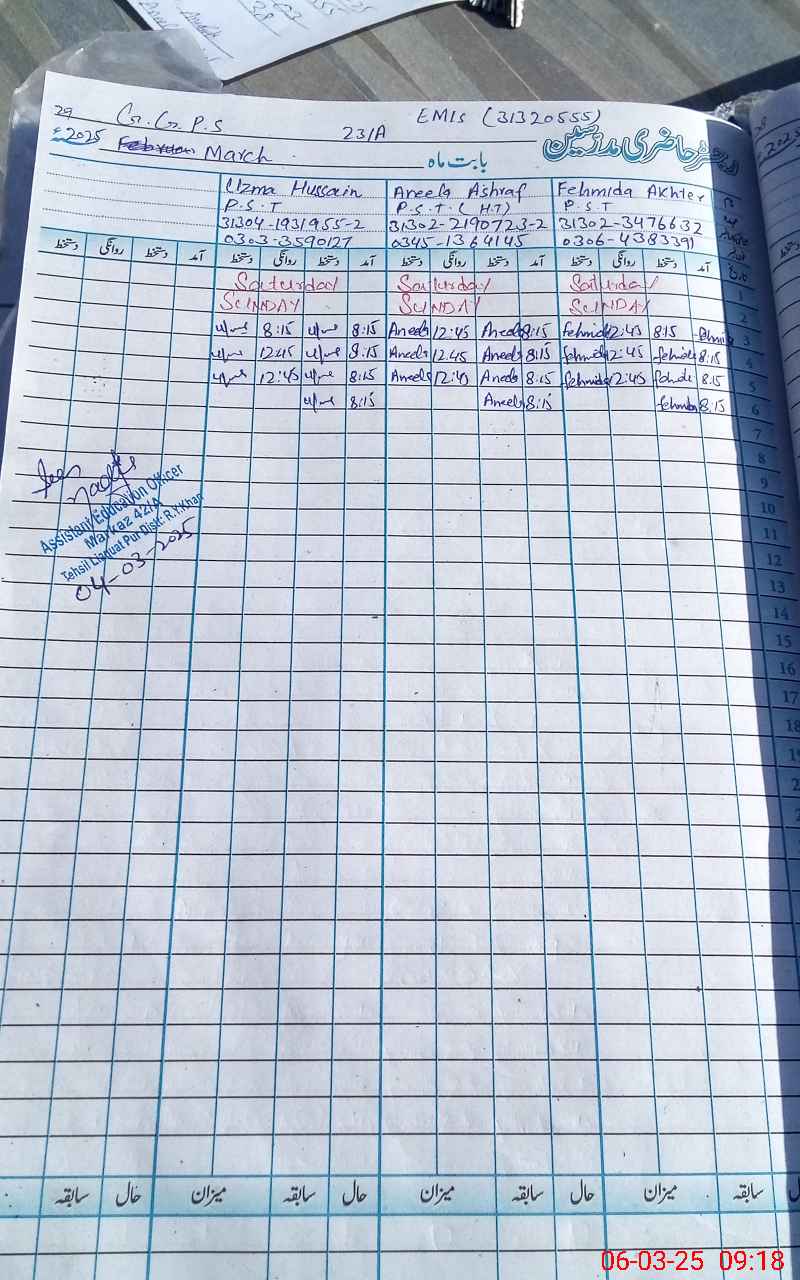 29 G.G.P.S 231A EMIS (31320555)
رجسٹر حاضری مدرسین
2025ء March بابت ماہ
Uzma Hussain Aneela Ashraf Fehmida Akhter
P.S.T P.S.T.(H.T) P.S.T
31304-1931955-2 31302-2190723-2 31302-3476632
0303-3590127 0345-1364145 0306-4383391
دستخط روانگی دستخط آمد دستخط روانگی دستخط آمد دستخط روانگی دستخط آمد دستخط روانگی دستخط آمد
Saturday Saturday Saturday 1
SUNDAY SUNDAY SUNDAY 2
8:15 8:15 Aneela 12:45 Aneela 8:15 Fehmida 12:45 8:15 Fehmida 3
12:45 8:15 Aneela 12:45 Aneela 8:15 Fehmida 12:45 Fehmida 8:15 4
12:45 8:15 Aneela 12:45 Aneela 8:15 Fehmida 12:45 Fehmida 8:15 5
8:15 Aneela 8:15 Fehmida 8:15 6
7
8
9
10
11
12
13
14
15
16
17
18
Seen
Assistant Education Officer
Markaz 42/A
Tehsil Liaquat Pur Distt: R.Y.Khan
04-03-2025
سابقہ حال میزان سابقہ حال میزان سابقہ حال میزان سابقہ
06-03-25 09:18